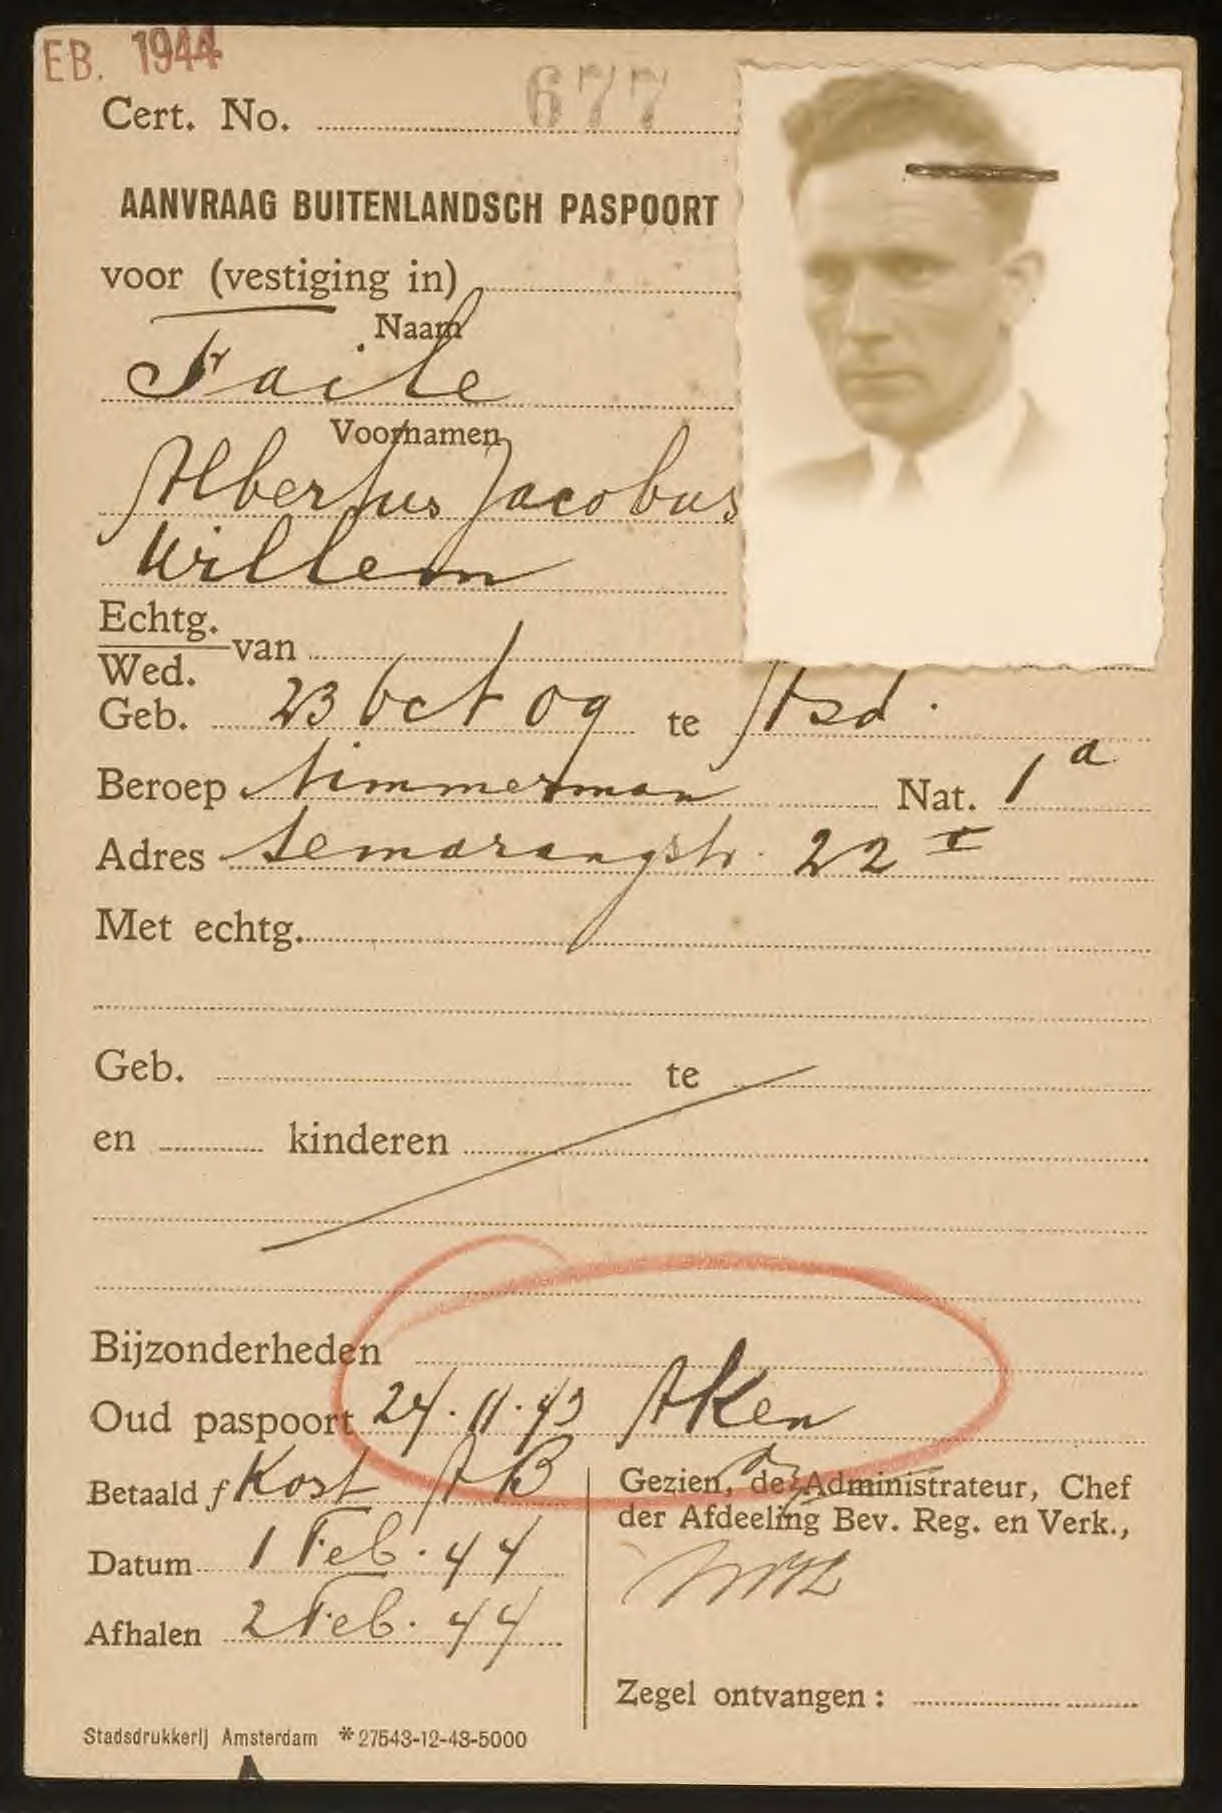 EB. 1944
Cert. No. 677
AANVRAAG BUITENLANDSCH PASPOORT
voor (vestiging in)
Naam
Faile
Voornamen
Albertus Jacobus
Willem
Echtg.
Wed. van
Geb. 23 Oct 09 te Asd.
Beroep timmerman Nat. 1a
Adres Semarangstr. 22 I
Met echtg.
Geb. te
en kinderen
Bijzonderheden
Oud paspoort 24.11.43 Aken
Betaald f Kost AB
Datum 1 Feb. 44
Afhalen 2 Feb. 44
Gezien, de Administrateur, Chef
der Afdeeling Bev. Reg. en Verk.,
Zegel ontvangen:
Stadsdrukkerij Amsterdam *27543-12-43-5000